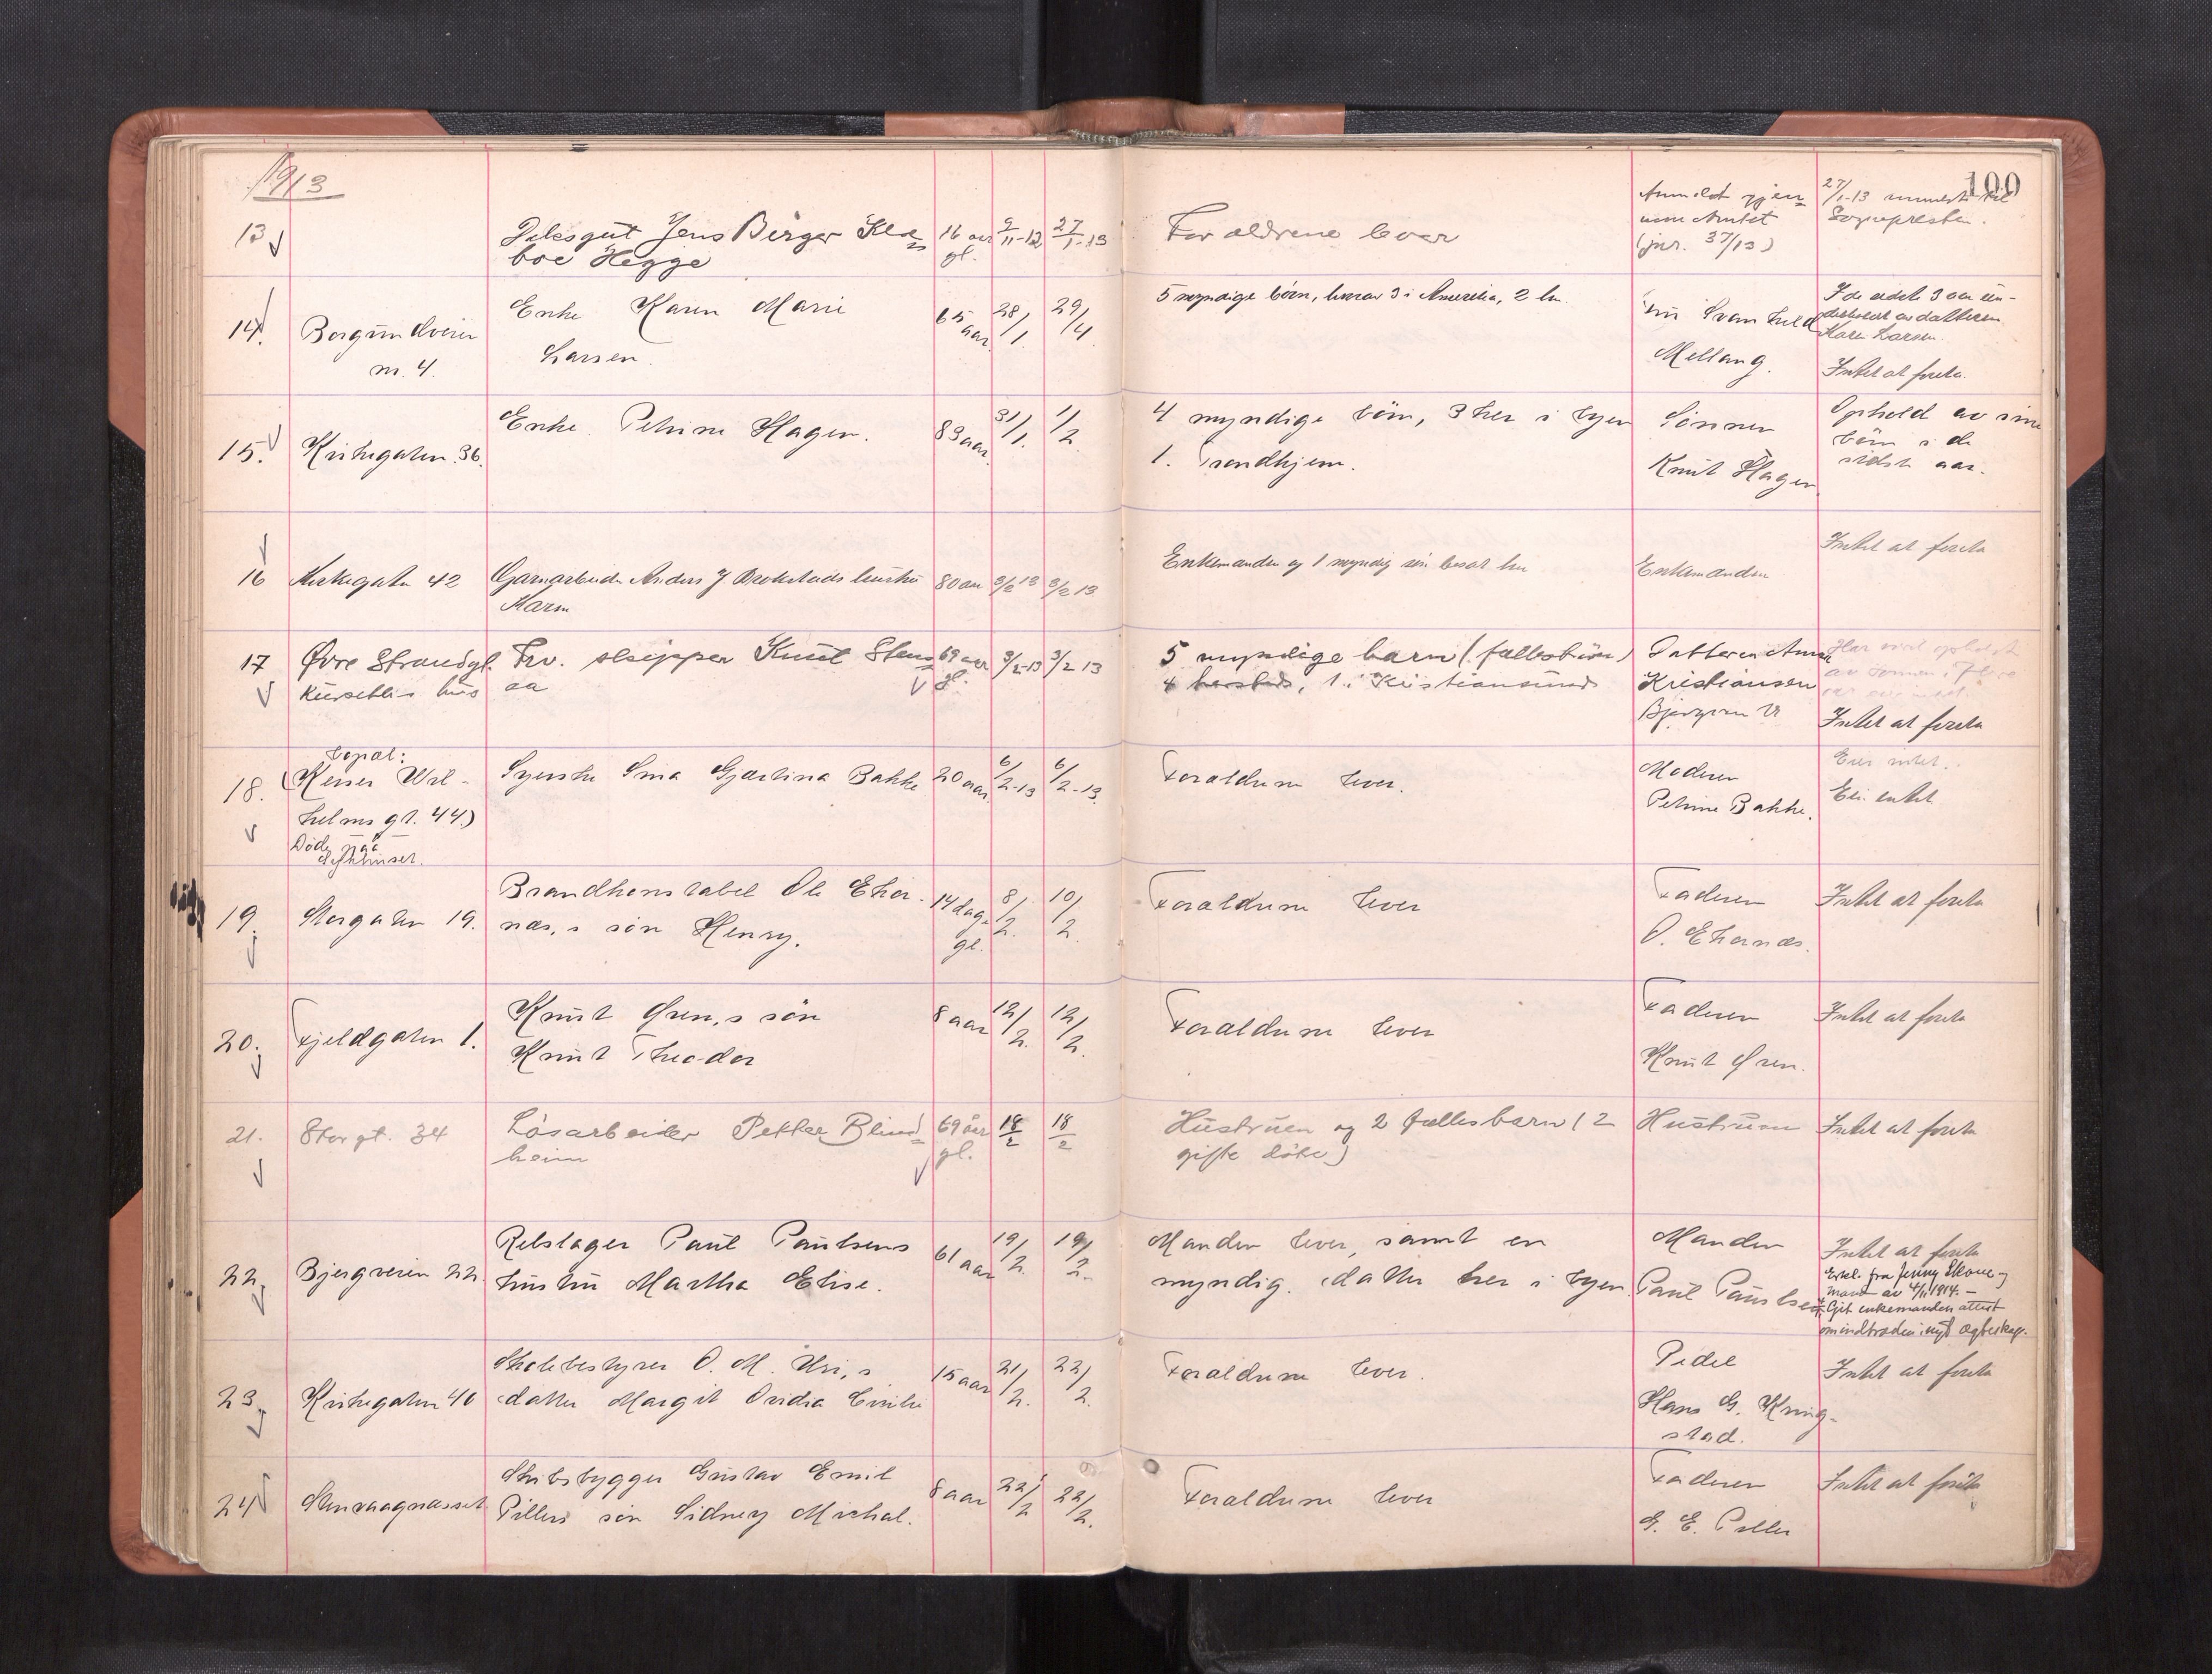 1913
100
13
Jens Birger Kla=
boe Hegge
16 aar
gl.
9/11-12
27/1-13
Forældrene lever
Anmeldt gjen=
nem Amtet
(jnr. 37/13)
27/1-13 anmeldt til
Sognepresten.
14.
Borgundveien
nr. 4.
Enke Karen Marie
Larsen.
65 aar.
28/1.
29/4.
5 myndige börn, hvorav 3 i Amerika, 2 her.
Mellang.
I de sidste 3 aar un-
derholdt av datteren
Kare Larsen.
Intet at foreta.
15.
Kirkegaten 36.
Enke Petrine Hagen.
83 aar.
31/1.
1/2.
4 myndige börn, 3 her i byen
1. Trondhjem.
Sönnen
Knut Hagen
Ophold av sine
börn i de
sidste aar.
16
Kirkegaten 42
Garnarbeider Anders J Brokstads hustru
Karen
80 aar
3/2 13
3/2 13
Enkemanden og 1 myndig sön bosat her
Enkemanden
Intet at foreta
17
Øvre Strandgt.
hus
Frv. skipper Knut Sten=
aa
69 aar
gl.
3/2-13
3/2 13
5 myndige barn (fællesbörn)
4 hersteds, 1 i Kristiansund
Datteren Anna
Kristiansen
Bjergvn 12
Intet at foreta
18.
bopæl:
(Keiser Wil-
helms gt. 44.)
Döde paa
Sykehuset.
Syerske Sina Gjertina Bakke
20 aar.
6/2-13
6/2-13.
Forældrene lever.
Moderen
Petrine Bakke.
Eier intet.
Eier intet
19.
Storgaten 19.
Brandkonstabel Ole Ekor-
næs,s sön Henry.
14 dage
gl.
8/2.
10/2.
Forældrene lever
Faderen
O. Ekornæs.
Intet at foreta
20.
Fjeldgaten 1.
Knut Øren,s sön
Knut Theodor
8 aar
12/2.
12/2.
Forældrene lever
Faderen
Knut Øren.
Intet at foreta
21.
Storgt. 34
Lösarbeider Petter Blind=
heim
69 aar
gl.
18/2
18/2
Hustruen og 2 fællesbarn (2
gifte dötre)
Hustruen
Intet at foreta
22.
Bjergveien 22.
Repslager Paul Paulsens
hustru Martha Elise.
61 aar
19/2.
19/2.
Manden lever, samt en
myndig datter her i byen.
Manden
Paul Paulsen
Intet at foreta
Erkl. fra Jenny Skone og
mand av 4/11 1914. –
Git enkemanden attest
om indtræden i nyt ægteskap.
23.
Kirkegaten 40
Skolebestyrer O. M. Uri,s
datter Margit Ovidia Emilie
15 aar
21/2.
22/2.
Forældrene lever.
Pedel
Hans G. Kring-
stad.
Intet at foreta
24
Stenvaagnæsset
Skibsbygger Gustav Emil
Pillers sön Sidney Michal.
8 aar
22/2
22/2.
Forældrene lever
Faderen
G. E. Piller
Intet at foreta